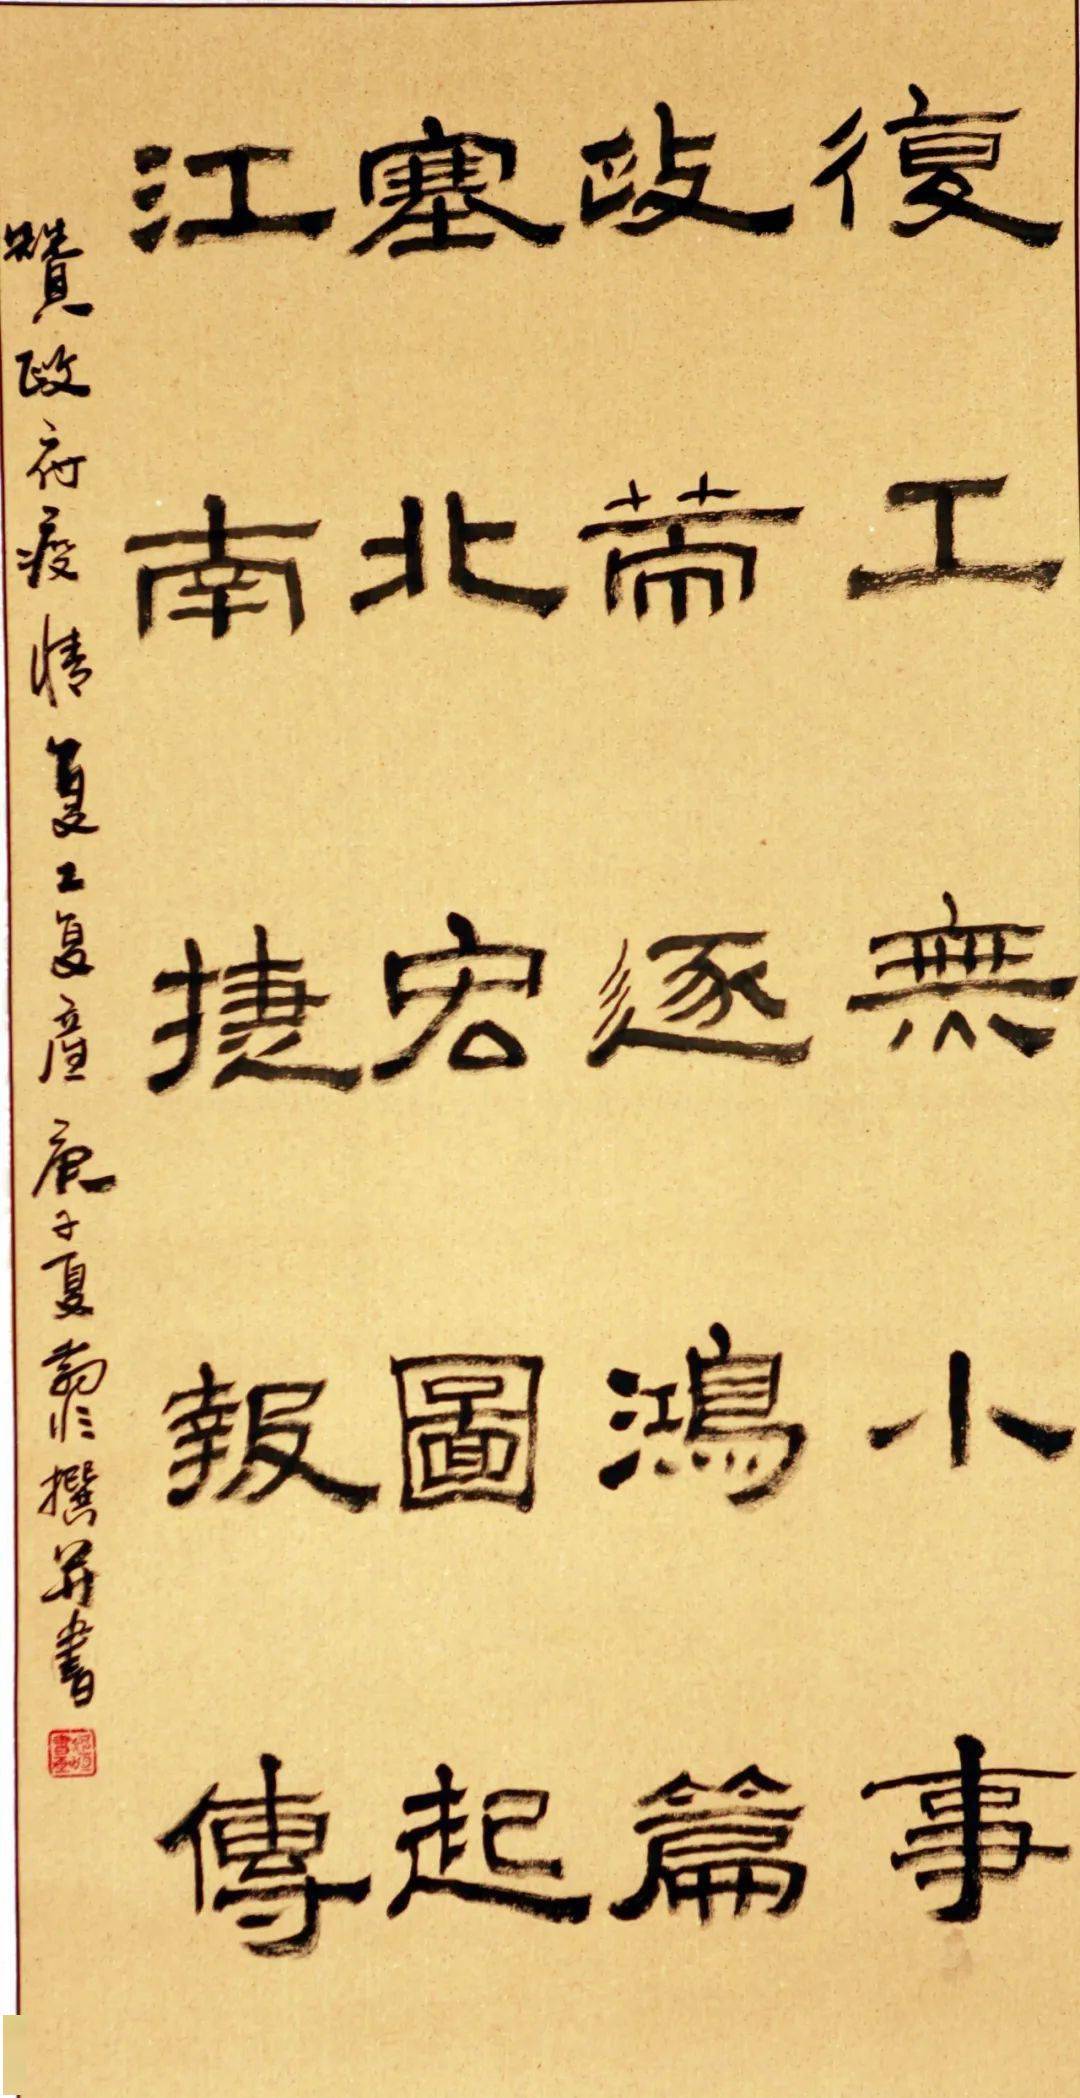 復工無小事
政逐鴻篇
塞北宏圖起
江南捷報傳
贊政府疫情复工复産 庚子夏 撰并書